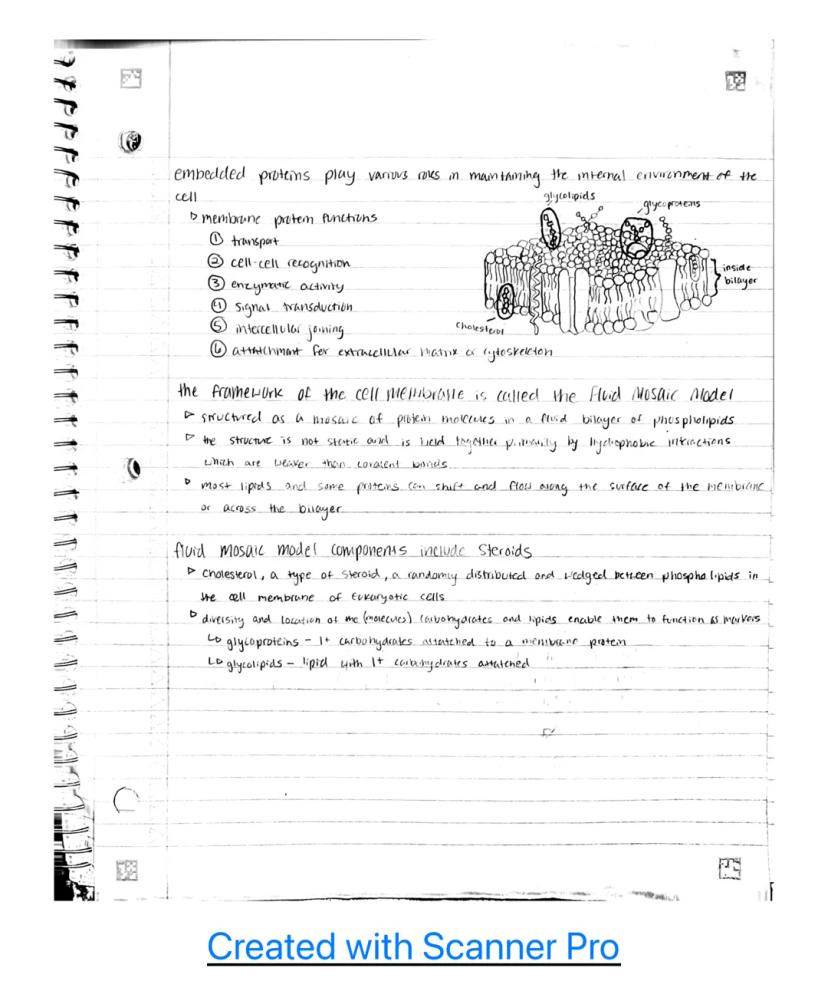 embedded proteins play various roles in maintaining the internal environment of the
cell
glycolipids
glycoproteins
▷ membrane protein functions
① transport
② cell-cell recognition
③ enzymatic activity
④ signal transduction
⑤ intercellular joining
⑥ attatchment for extracellular matrix or cytoskeleton
inside
bilayer
cholesterol
the framework of the cell membrane is called the Fluid Mosaic Model
▷ structured as a mosaic of protein molecules in a fluid bilayer of phospholipids
▷ the structure is not static and is held together primarily by hydrophobic interactions
which are weaker than covalent bonds
▷ most lipids and some proteins can shift and flow along the surface of the membrane
or across the bilayer
fluid mosaic model components include Steroids
▷ Cholesterol, a type of steroid, a randomly distributed and wedged between phospholipids in
the cell membrane of Eukaryotic cells
▷ diversity and location of mc (molecules) carbohydrates and lipids enable them to function as markers
↳ glycoproteins - 1+ carbohydrates attatched to a membrane protein
↳ glycolipids - lipid with 1+ carbohydrates attatched
Created with Scanner Pro